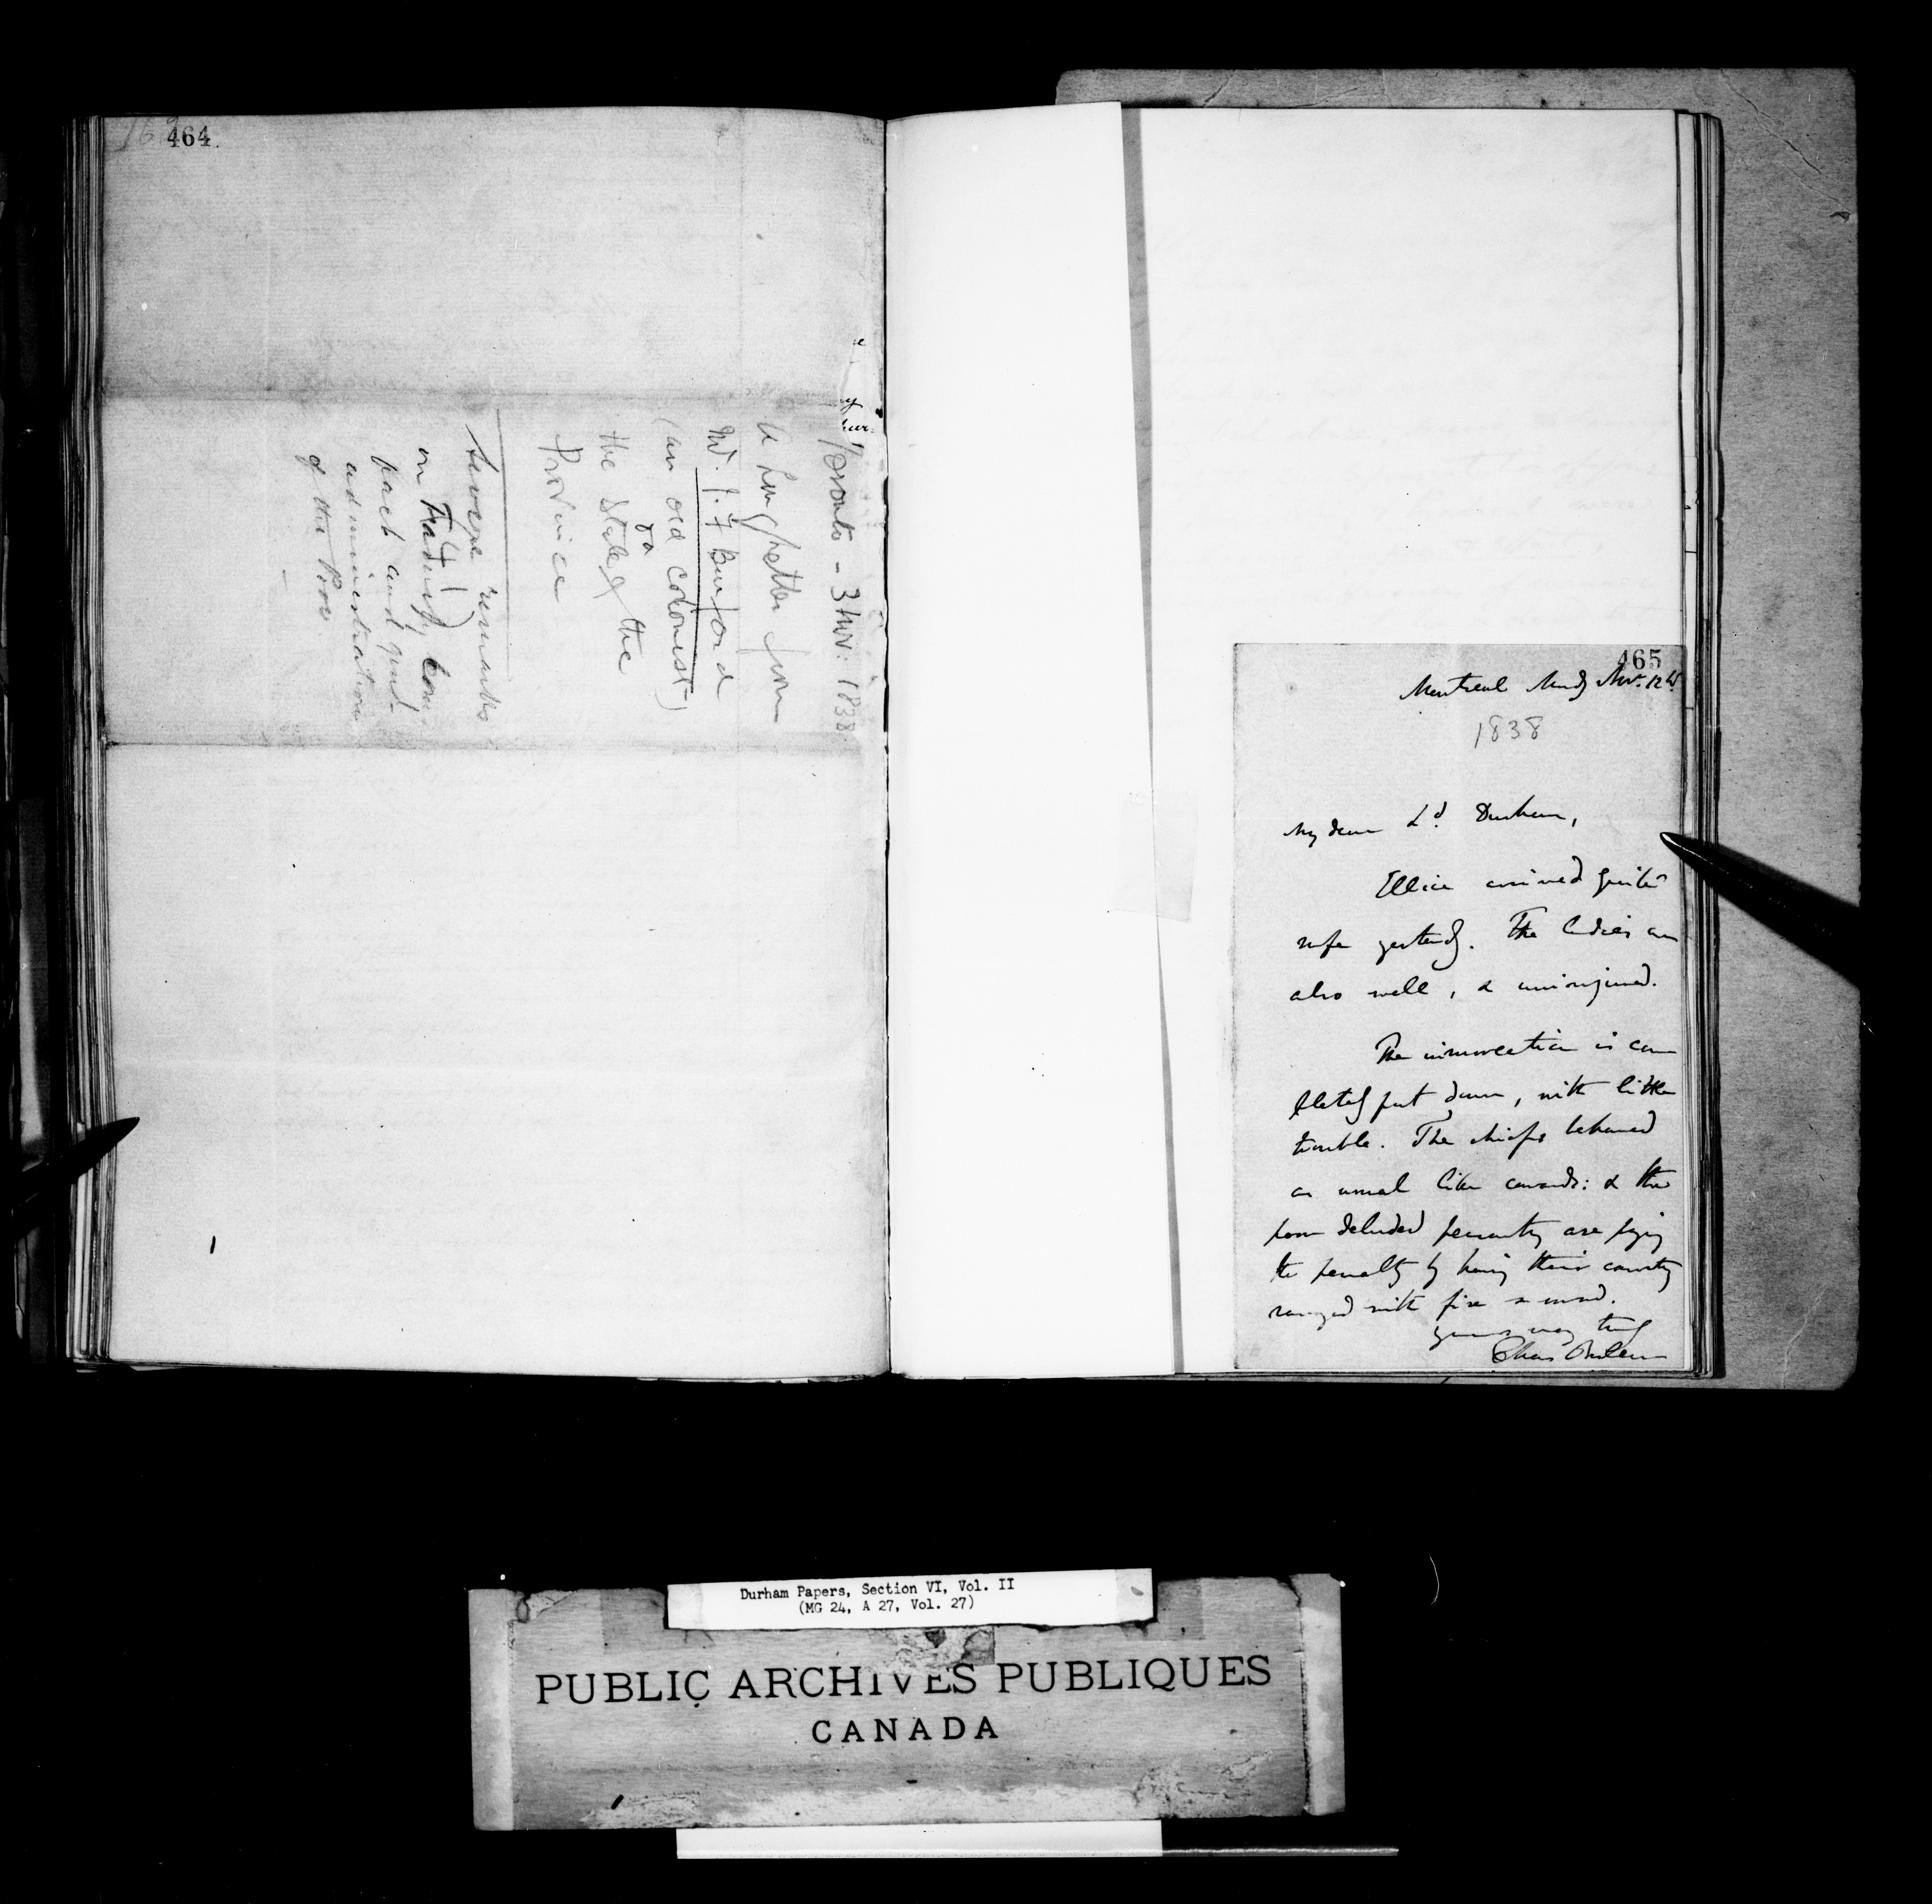 464
Toronto - 3 Nov: 1838
A long letter from
Mr. J. F Burford
(an old Colonist)
on
the State of the
Province
Severe remarks
on Trading Com
past and genl.
administration
of the Prov.
465
Montreal Mondy Novr. 12th.
1838
My dear Ld. Durham,
Ellice arrived quite
safe yesterdy. The ladies are
also well, & uninjured.
The insurrection is com
pletely put down, with little
trouble. The chiefs behaved
as usual like cowards: & the
poor deluded peasantry are paying
the penalty by having their country
ravaged with fire & sword.
yours very truly
Chas Buller
Durham Papers, Section VI, Vol. II
(MG 24, A 27, Vol. 27)
PUBLIC ARCHIVES PUBLIQUES
CANADA